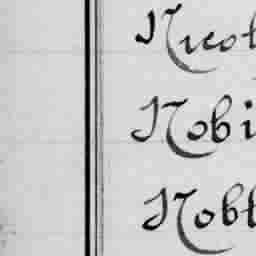 Nicot
Nobi
Nobt